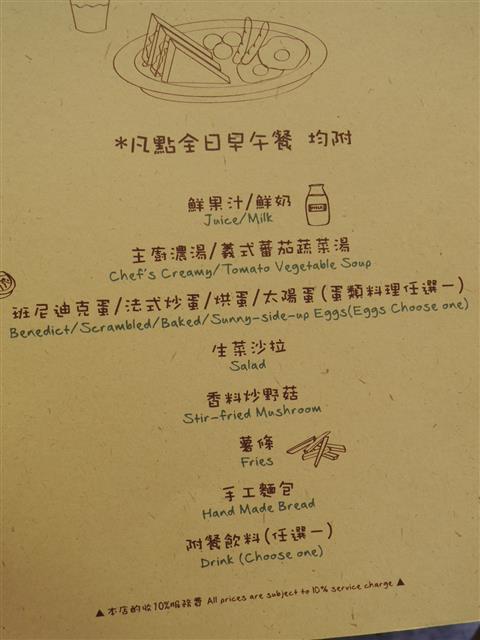 *凡點全日早午餐 均附
鮮果汁/鮮奶
Juice/Milk
MILK
主廚濃湯/義式蕃茄蔬菜湯
Chef's Creamy/Tomato Vegetable Soup
班尼迪克蛋/法式炒蛋/烘蛋/太陽蛋(蛋類料理任選一)
Benedict/Scrambled/Baked/Sunny-side-up Eggs(Eggs Choose one)
生菜沙拉
Salad
香料炒野菇
Stir-fried Mushroom
薯條
Fries
手工麵包
Hand Made Bread
附餐飲料(任選一)
Drink (Choose one)
▲本店酌收10%服務費 All prices are subject to 10% service charge▲